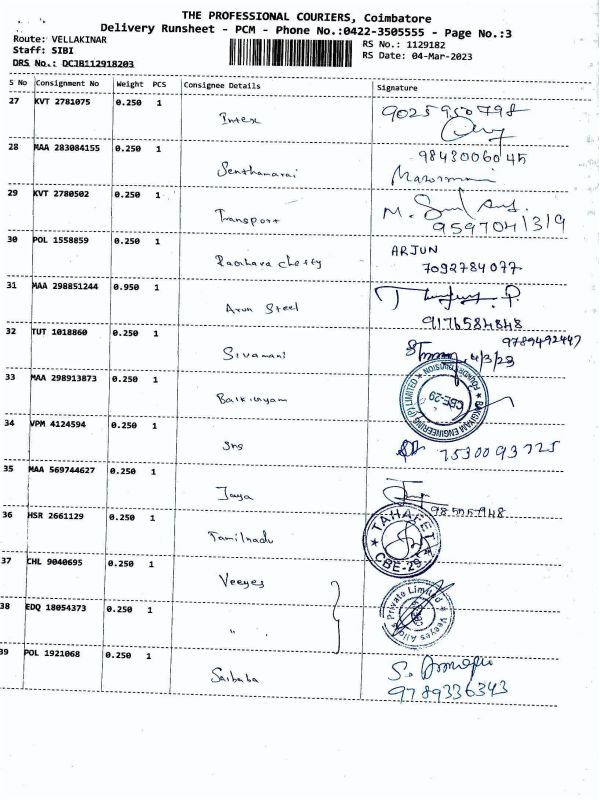 THE PROFESSIONAL COURIERS, Coimbatore
Delivery Runsheet - PCM - Phone No.:0422-3505555 - Page No.:3
Route: VELLAKINAR
RS No.: 1129182
Staff: SIBI
RS Date: 04-Mar-2023
DRS No.: DCJB112918203
S No Consignment No Weight PCS Consignee Details Signature
27 KVT 2781075 0.250 1
Intex 9025950798
28 MAA 283084155 0.250 1 9843006045
Senthamarai
29 KVT 2780502 0.250 1
Transport 9597041319
30 POL 1558859 0.250 1 ARJUN
Raghava chetty 7092784077
31 MAA 298851244 0.950 1
Arun Steel 9176584848
32 TUT 1018860 0.250 1 9789492447
Sivamani 4/3/23
33 MAA 298913873 0.250 1
BAGIYAM ENGINEERING (P) LIMITED ★ FOUNDRY DIVISION ★
CBE-29
34 VPM 4124594 0.250 1
Sns 7530093725
35 MAA 569744627 0.250 1
Jaya
36 HSR 2661129 0.250 1
Tamilnadu
★ TAHAFET ★ CBE-29
37 CHL 9040695 0.250 1
Veeyes
38 EDQ 18054373 0.250 1
" Veeyes Alloys Private Limited ★
39 POL 1921068 0.250 1
Saibaba 9789336343